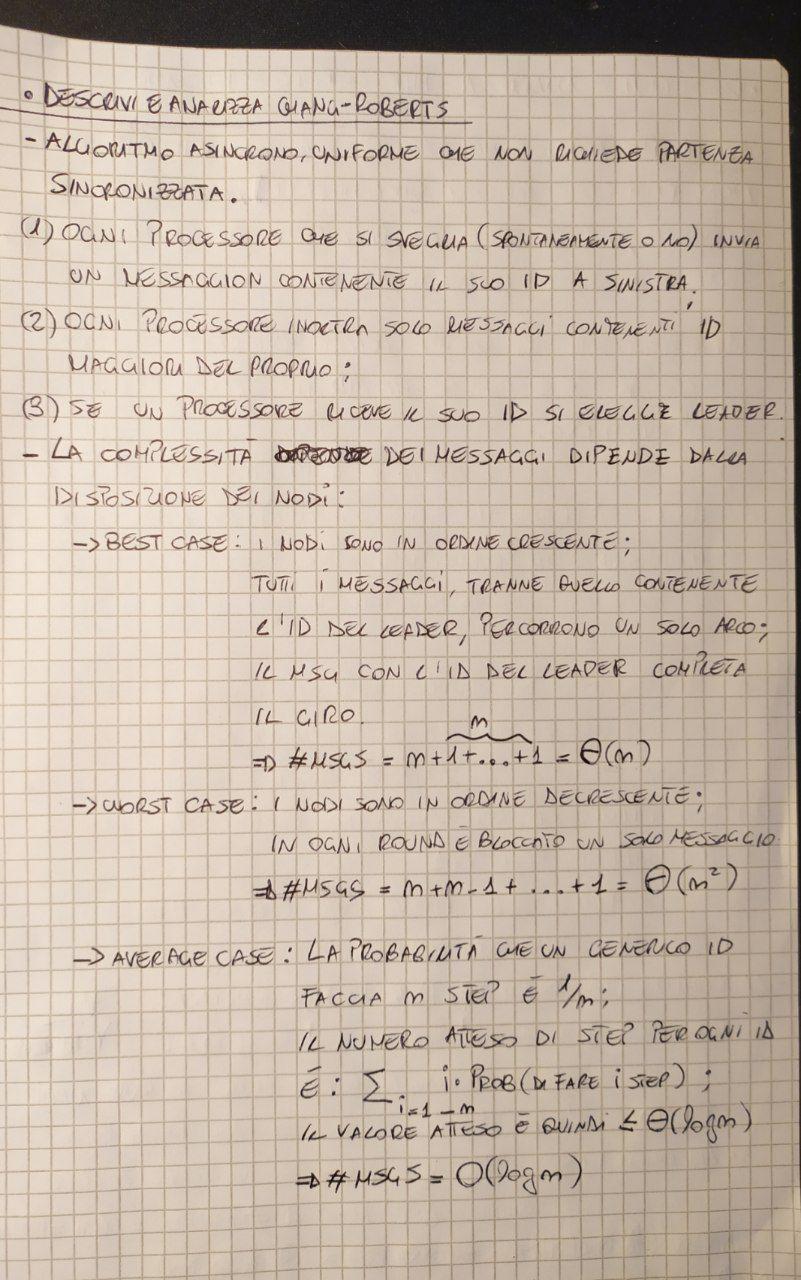 • DESCRIVI E ANALIZZA CHANG-ROBERTS
- ALGORITMO ASINCRONO, UNIFORME CHE NON RICHIEDE PARTENZA
SINCRONIZZATA.
(1) OGNI PROCESSORE CHE SI SVEGLIA (SPONTANEAMENTE O NO) INVIA
UN MESSAGGION CONTENENTE IL SUO ID A SINISTRA;
(2) OGNI PROCESSORE INOLTRA SOLO MESSAGGI CONTENENTI ID
MAGGIORI DEL PROPRIO;
(3) SE UN PROCESSORE RICEVE IL SUO ID SI ELEGGE LEADER.
- LA COMPLESSITÀ DEI MESSAGGI DIPENDE DALLA
DISPOSIZIONE DEI NODI:
-> BEST CASE: I NODI SONO IN ORDINE CRESCENTE;
TUTTI I MESSAGGI, TRANNE QUELLO CONTENENTE
L'ID DEL LEADER, PERCORRONO UN SOLO ARCO;
IL MSG CON L'ID DEL LEADER COMPLETA
IL GIRO.
n
=> #MSGS = n+1+...+1 = Θ(n)
-> WORST CASE: I NODI SONO IN ORDINE DECRESCENTE;
IN OGNI ROUND È BLOCCATO UN SOLO MESSAGGIO
=> #MSGS = n+n-1+...+1 = Θ(n²)
-> AVERAGE CASE: LA PROBABILITÀ CHE UN GENERICO ID
FACCIA n STEP È 1/n;
IL NUMERO ATTESO DI STEP PER OGNI ID
È: ∑ i=1-n i • PROB(DI FARE i STEP);
IL VALORE ATTESO È QUINDI ≤ Θ(logn)
=> #MSGS = O(logn)